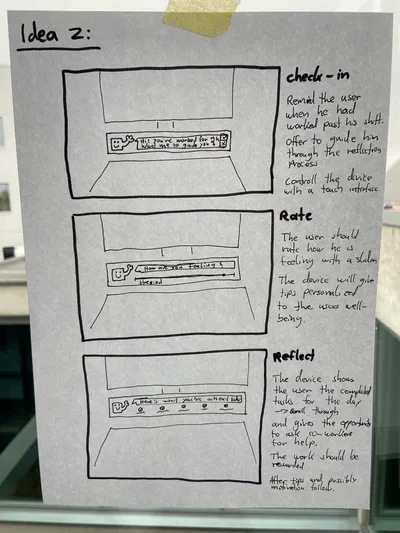 Idea 2:
check-in
Hi! You've worked for 9h
Want me to guide you?
Remind the user
when he had
worked past his shift.
Offer to guide him
through the reflection
process
Controll the device
with a touch interface
Rate
How are you feeling?
The user should
rate how he is
feeling with a slider
The device will give
tips personalized
to the users well-
being.
Reflect
Here's what you've achieved
The device shows
the user the completed
tasks for the day
→ Scroll through
and gives the opportunity
to ask co-workers
for help,
The work should be
rewarded
After tips and possibly
motivation follow.